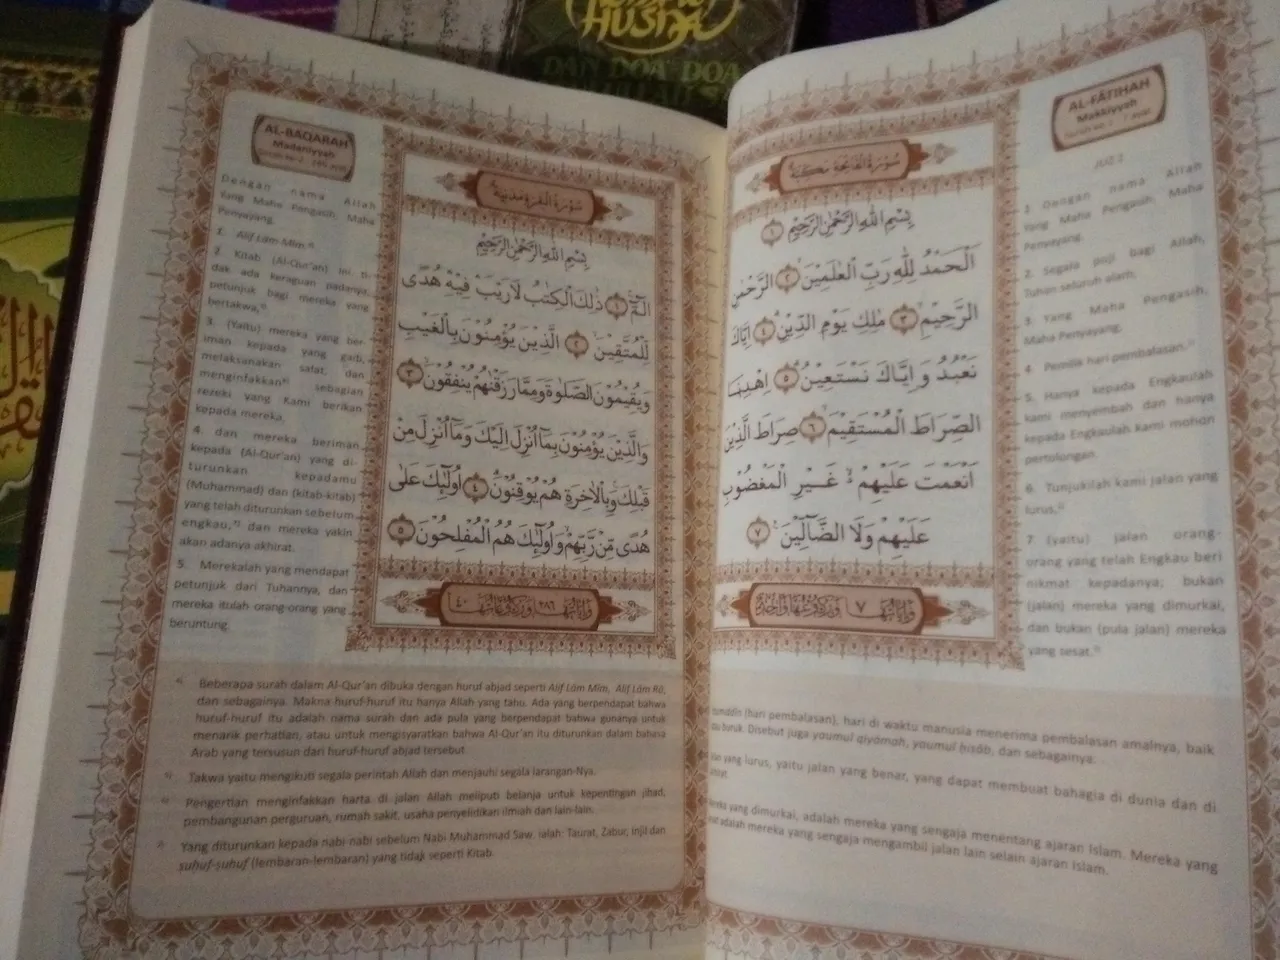 HUSNA
DAN DOA DOA
AL-FĀTIHAH
Makkiyyah
JUZ 1
سُوْرَةُ الْفَاتِحَةِ مَكِّيَّةٌ
بِسْمِ اللّٰهِ الرَّحْمٰنِ الرَّحِيْمِ ۝١
اَلْحَمْدُ لِلّٰهِ رَبِّ الْعٰلَمِيْنَۙ ۝٢ الرَّحْمٰنِ
الرَّحِيْمِۙ ۝٣ مٰلِكِ يَوْمِ الدِّيْنِۗ ۝٤ اِيَّاكَ
نَعْبُدُ وَاِيَّاكَ نَسْتَعِيْنُۗ ۝٥ اِهْدِنَا
الصِّرَاطَ الْمُسْتَقِيْمَۙ ۝٦ صِرَاطَ الَّذِيْنَ
اَنْعَمْتَ عَلَيْهِمْ ەۙ غَيْرِ الْمَغْضُوْبِ
عَلَيْهِمْ وَلَا الضَّاۤلِّيْنَ ۝٧
1 Dengan nama Allah
Yang Maha Pengasih, Maha
Penyayang.
2. Segala puji bagi Allah,
Tuhan seluruh alam,
3 Yang Maha Pengasih,
Maha Penyayang,
4 Pemilik hari pembalasan.
5. Hanya kepada Engkaulah
kami menyembah dan hanya
kepada Engkaulah kami mohon
pertolongan.
6. Tunjukilah kami jalan yang
lurus,
7 (yaitu) jalan orang-
orang yang telah Engkau beri
nikmat kepadanya; bukan
(jalan) mereka yang dimurkai,
dan bukan (pula jalan) mereka
yang sesat.
(hari pembalasan), hari di waktu manusia menerima pembalasan amalnya, baik
buruk. Disebut juga yaumul qiyāmah, yaumul ḥisāb, dan sebagainya.
yang lurus, yaitu jalan yang benar, yang dapat membuat bahagia di dunia dan di
yang dimurkai, adalah mereka yang sengaja menentang ajaran Islam. Mereka yang
adalah mereka yang sengaja mengambil jalan lain selain ajaran Islam.
AL-BAQARAH
Madaniyyah
سُوْرَةُ الْبَقَرَةِ مَدَنِيَّةٌ
بِسْمِ اللّٰهِ الرَّحْمٰنِ الرَّحِيْمِ
الۤمّۤ ۝١ ذٰلِكَ الْكِتٰبُ لَا رَيْبَ فِيْهِ هُدًى
لِّلْمُتَّقِيْنَۙ ۝٢ الَّذِيْنَ يُؤْمِنُوْنَ بِالْغَيْبِ
وَيُقِيْمُوْنَ الصَّلٰوةَ وَمِمَّا رَزَقْنٰهُمْ يُنْفِقُوْنَۙ ۝٣
وَالَّذِيْنَ يُؤْمِنُوْنَ بِمَآ اُنْزِلَ اِلَيْكَ وَمَآ اُنْزِلَ مِنْ
قَبْلِكَۚ وَبِالْاٰخِرَةِ هُمْ يُوْقِنُوْنَۗ ۝٤ اُولٰۤىِٕكَ عَلٰى
هُدًى مِّنْ رَّبِّهِمْ وَاُولٰۤىِٕكَ هُمُ الْمُفْلِحُوْنَ ۝٥
Dengan nama Allah
Yang Maha Pengasih, Maha
Penyayang.
1. Alif Lām Mīm.
2 Kitab (Al-Qur'an) ini ti-
dak ada keraguan padanya;
petunjuk bagi mereka yang
bertakwa,
3. (Yaitu) mereka yang ber-
iman kepada yang gaib,
melaksanakan salat, dan
menginfakkan sebagian
rezeki yang Kami berikan
kepada mereka,
4. dan mereka beriman
kepada (Al-Qur'an) yang di-
turunkan kepadamu
(Muhammad) dan (kitab-kitab)
yang telah diturunkan sebelum
engkau, dan mereka yakin
akan adanya akhirat.
5. Merekalah yang mendapat
petunjuk dari Tuhannya, dan
mereka itulah orang-orang yang
beruntung.
Beberapa surah dalam Al-Qur'an dibuka dengan huruf abjad seperti Alif Lām Mīm, Alif Lām Rā,
dan sebagainya. Makna huruf-huruf itu hanya Allah yang tahu. Ada yang berpendapat bahwa
huruf-huruf itu adalah nama surah dan ada pula yang berpendapat bahwa gunanya untuk
menarik perhatian, atau untuk mengisyaratkan bahwa Al-Qur'an itu diturunkan dalam bahasa
Arab yang tersusun dari huruf-huruf abjad tersebut.
Takwa yaitu mengikuti segala perintah Allah dan menjauhi segala larangan-Nya.
Pengertian menginfakkan harta di jalan Allah meliputi belanja untuk kepentingan jihad,
pembangunan perguruan, rumah sakit, usaha penyelidikan ilmiah dan lain-lain.
Yang diturunkan kepada nabi-nabi sebelum Nabi Muhammad Saw. ialah: Taurat, Zabur, Injil dan
suhuf-suhuf (lembaran-lembaran) yang tidak seperti Kitab.